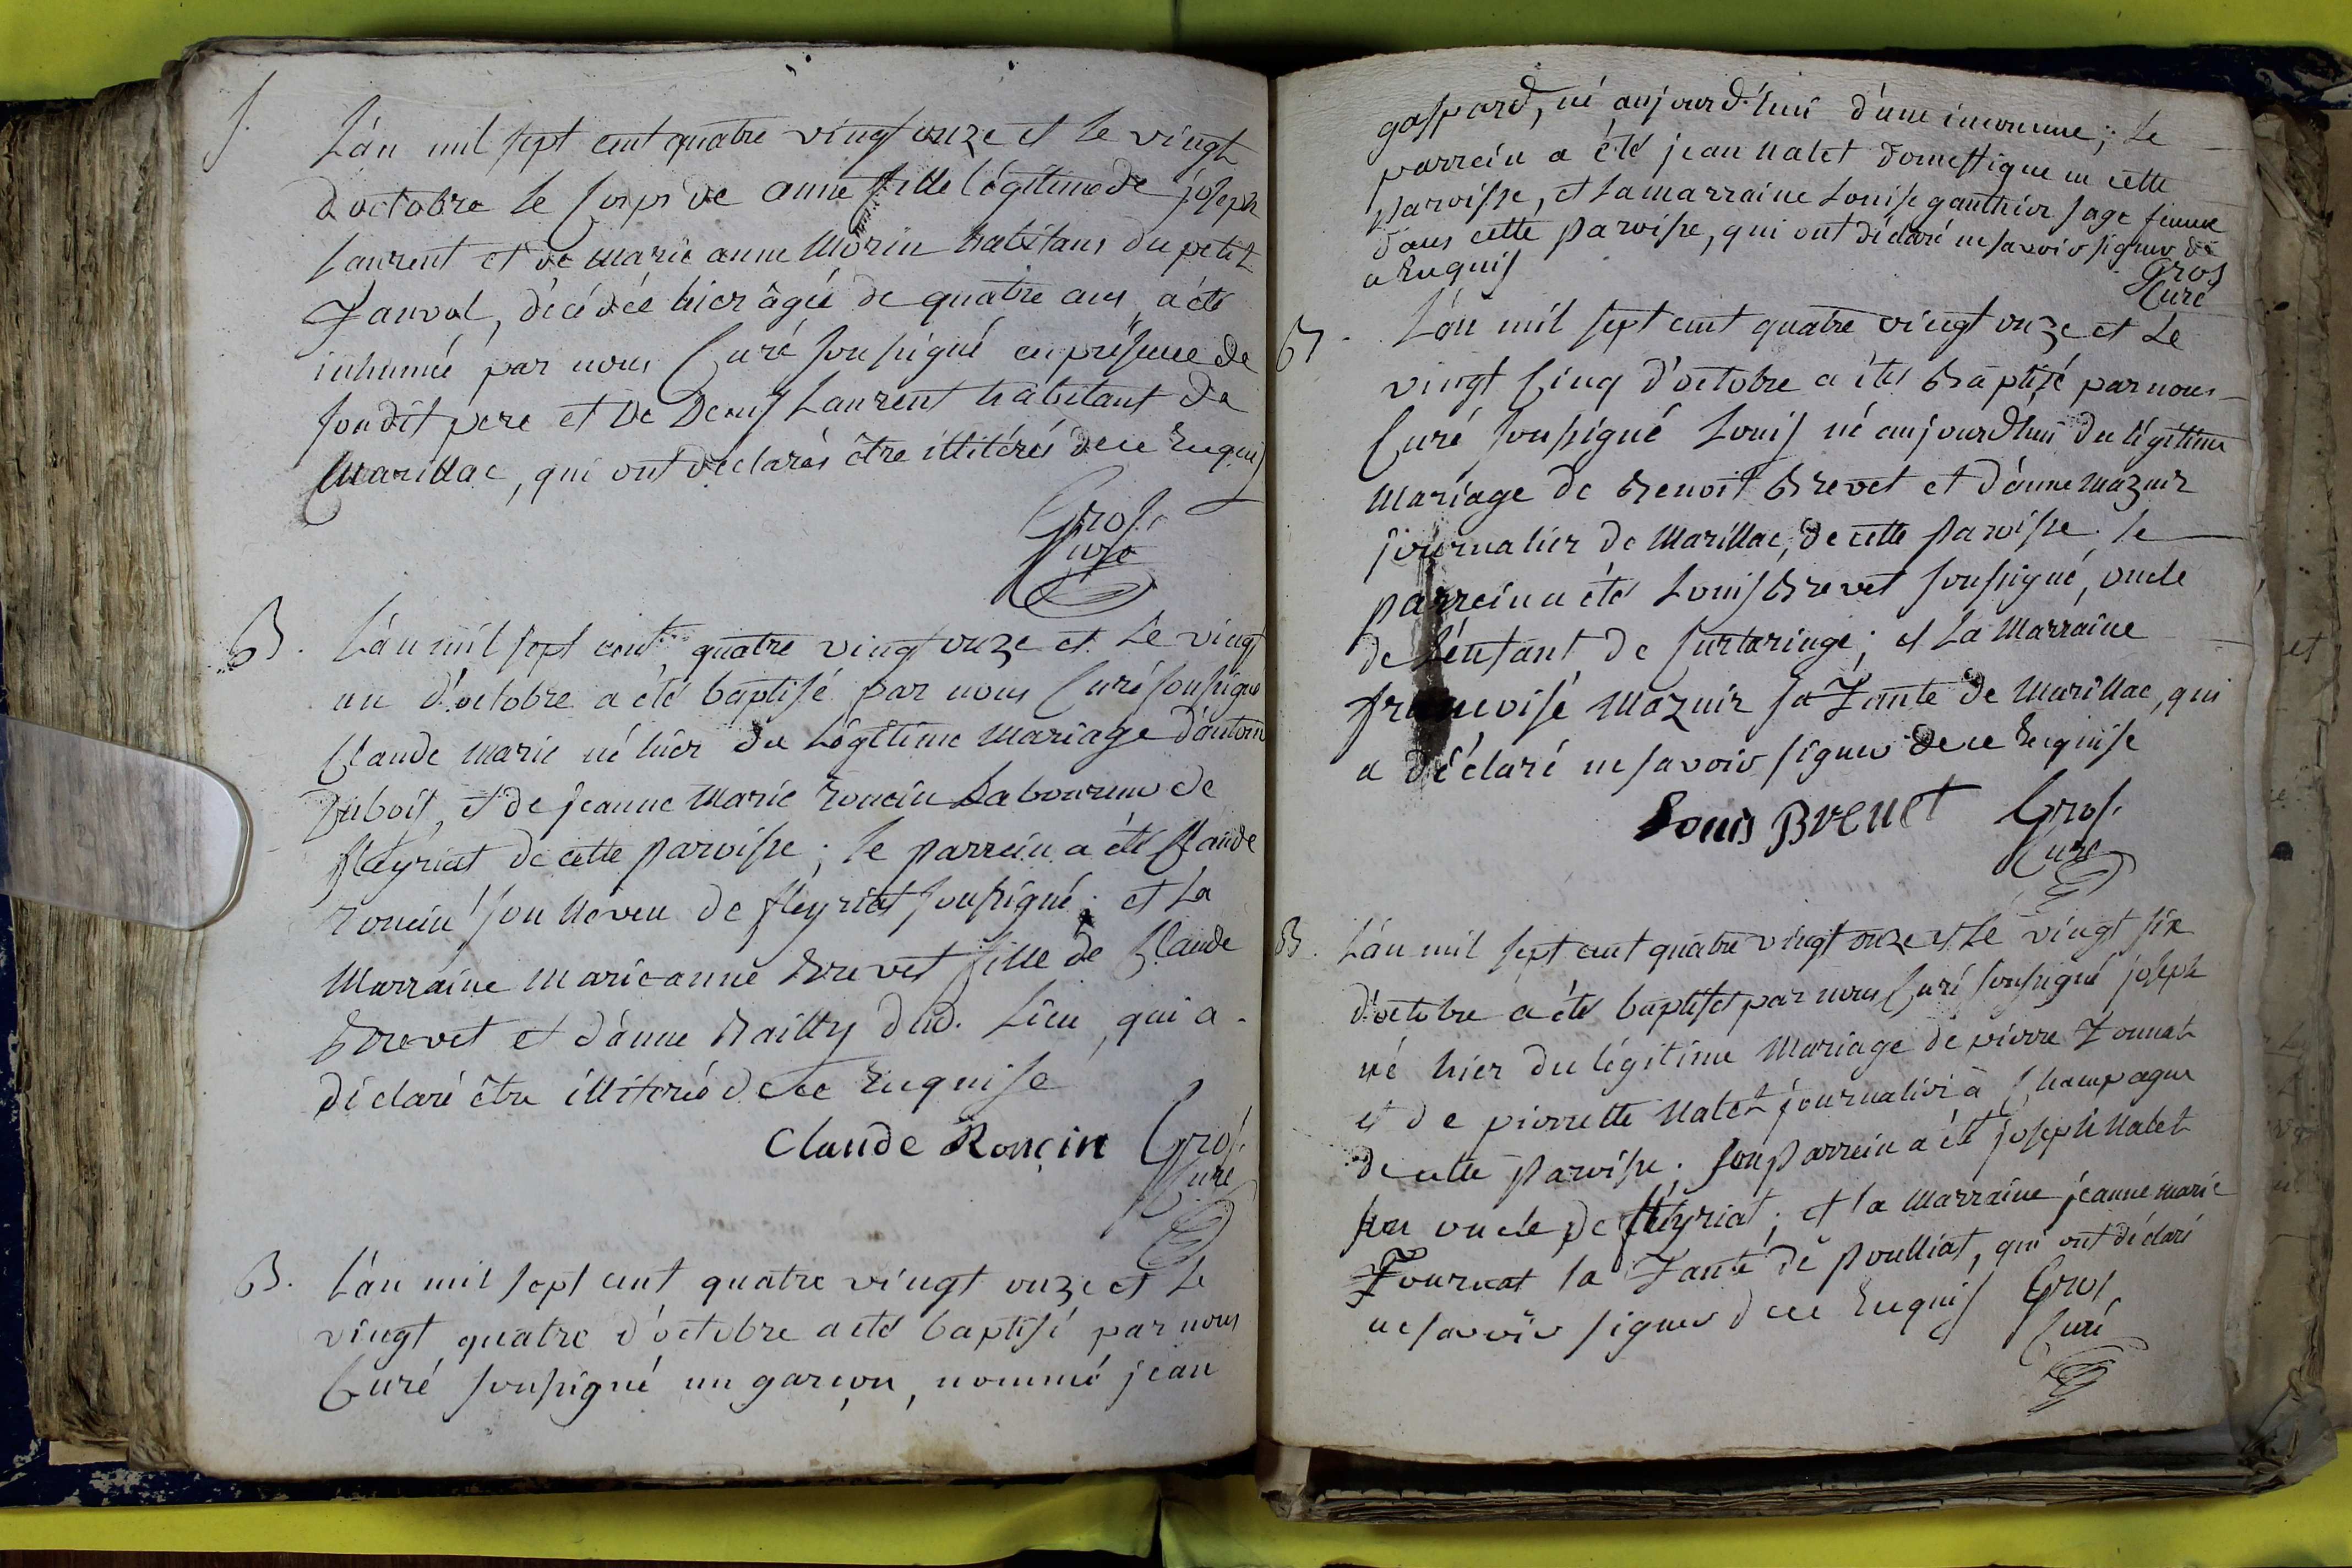 S.
L'an mil sept cent quatre vingt onze et le vingt
d'octobre le corps de anne fille légitime de joseph
Laurent et de marie anne Morin habitans du petit
Janvol, décédée hier âgée de quatre ans, a été
inhumé par nous Curé soussigné en présence de
sondit pere et De Denis Laurent habitant de
Marillac, qui ont déclarés être illitérés de ce Enquis
Gros.
Curé
B. L'an mil sept cent quatre vingt onze et Le vingt
un d'octobre a été baptisé par nous Curé soussigné
Claude marie né hier du Légitime mariage d'antoine
Duboit, et de jeanne Marie roncin Laboureur de
fleyriat de cette paroisse ; le parrein a été Claude
roncin son Neveu de fleyriat soussigné ; et La
Marraine marie anne Brevet fille de Claude
Brevet et d'anne Bailly dud. Lieu, qui a
déclaré être illitérée de ce Enquise
Claude Ronçin Gros.
Curé
B. L'an mil sept cent quatre vingt onze et Le
vingt quatre d'octobre a été baptisé par nous
Curé soussigné un garçon, nommé jean
gaspard, né aujourd'hui d'une inconnue ; Le
parrein a été jean Nalet domestique en cette
paroisse, et La marraine Louise gauthier sage femme
dans cette paroisse, qui ont déclaré ne savoir signer de
ce Enquis
Gros
Curé
B. L'an mil sept cent quatre vingt onze et Le
vingt Cinq d'octobre a été Baptisé par nous
Curé soussigné Louis né aujourdhui du légitime
mariage de Benoit Brevet et d'anne mazuir
journalier de Marillac, de cette paroisse. le
parrein a été Louis Brevet soussigné, oncle
de L'enfant de Curtaringe ; et La Marraine
francoise Mazuir sa Tante de Marillac, qui
a déclaré ne savoir signer de ce Enquise
Louis Brevet Gros.
Curé
B. L'an mil sept cent quatre vingt onze et Le vingt six
d'octobre a été baptisé par nous Curé soussigné joseph
né hier du légitime Mariage de pierre Tournat
et de pierrette Nalet journalier à Champagne
de cette paroisse ; son parrein a été joseph Nalet
son oncle de fleyriat ; et la marraine jeanne marie
Tournat sa Tante de poulliat, qui ont déclaré
ne savoir signer de ce Enquis Gros
Curé